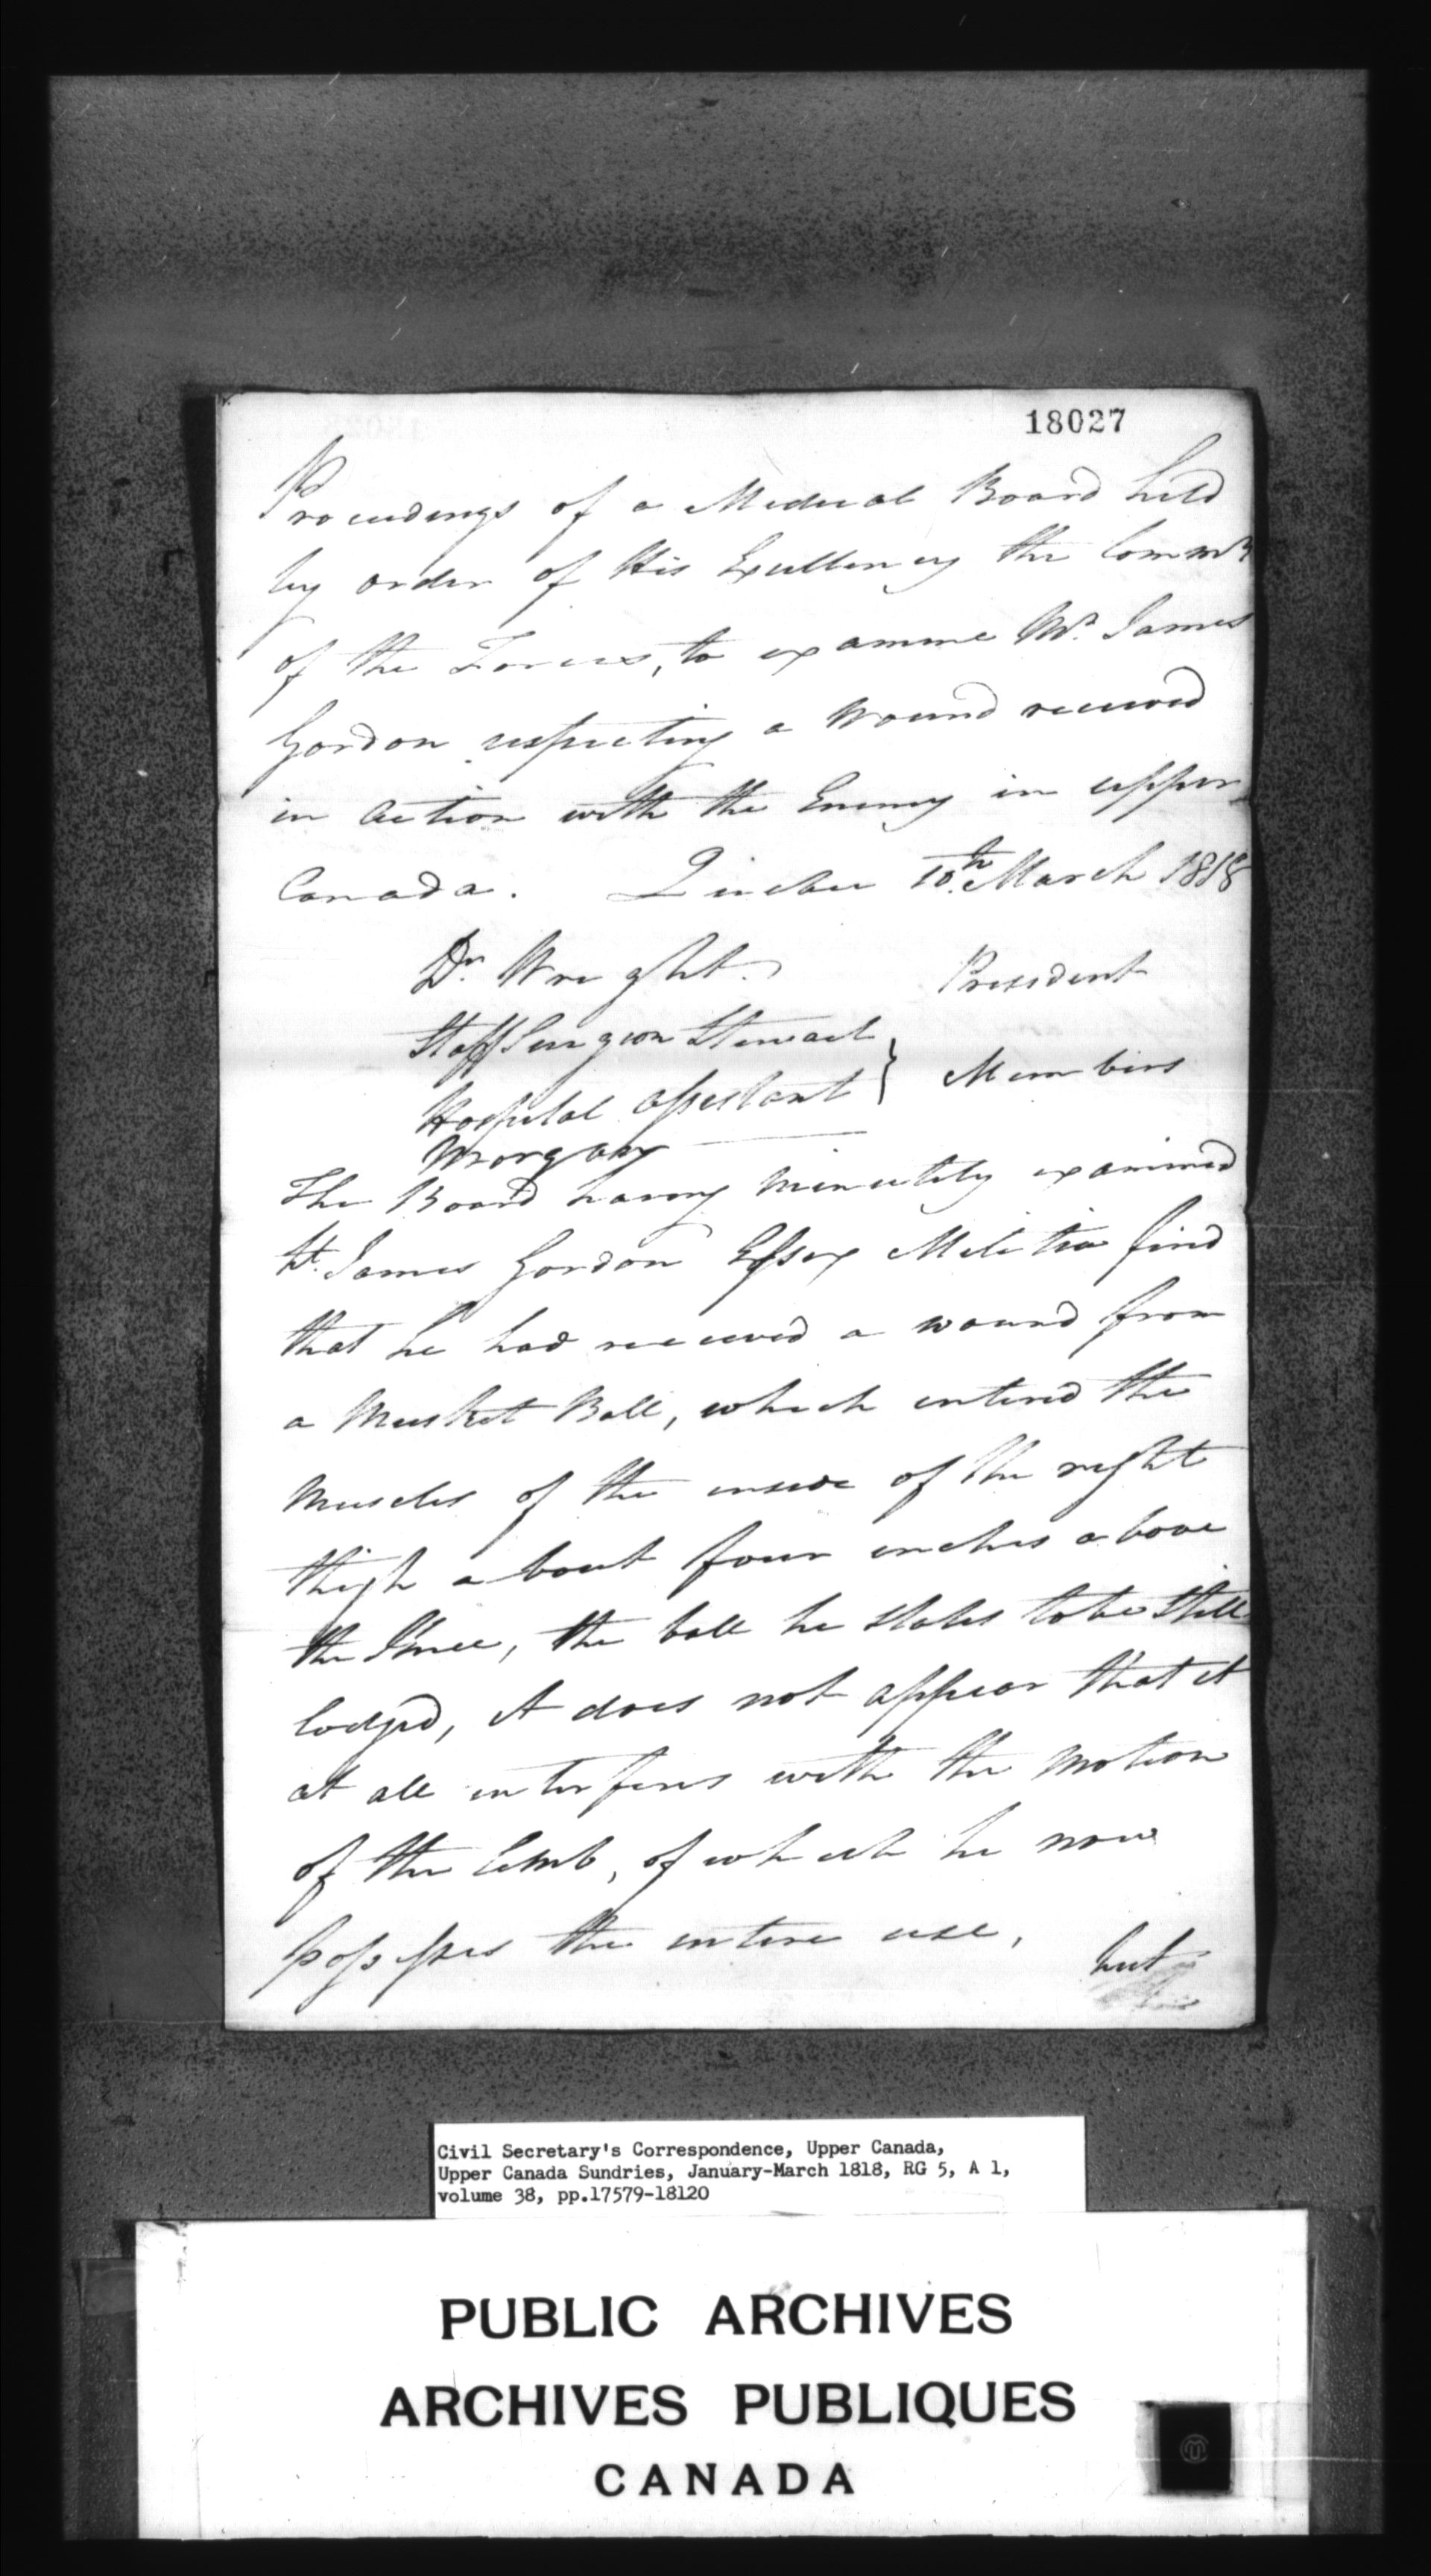 18027
Proceedings of a Medical Board held
by order of His Excellency the Commr
of the Forces, to examine Mr. James
Gordon respecting a Wound received
in Action with the Enemy in upper
Canada. Quebec 10th March 1818
Dr. Wright. President
Staff Surgeon Stewart } Members
Hospital Assistant
Morgan
The Board having Minutely examined
Lt. James Gordon Essex Militia find
that he had received a wound from
a Musket Ball, which entered the
Muscles of the inside of the right
thigh about four inches above
the Knee, the ball he states to be still
lodged, it does not appear that it
at all interferes with the Motion
of the limb, of which he now
possesses the entire use,
but
Civil Secretary's Correspondence, Upper Canada,
Upper Canada Sundries, January-March 1818, RG 5, A 1,
volume 38, pp.17579-18120
PUBLIC ARCHIVES
ARCHIVES PUBLIQUES
CANADA